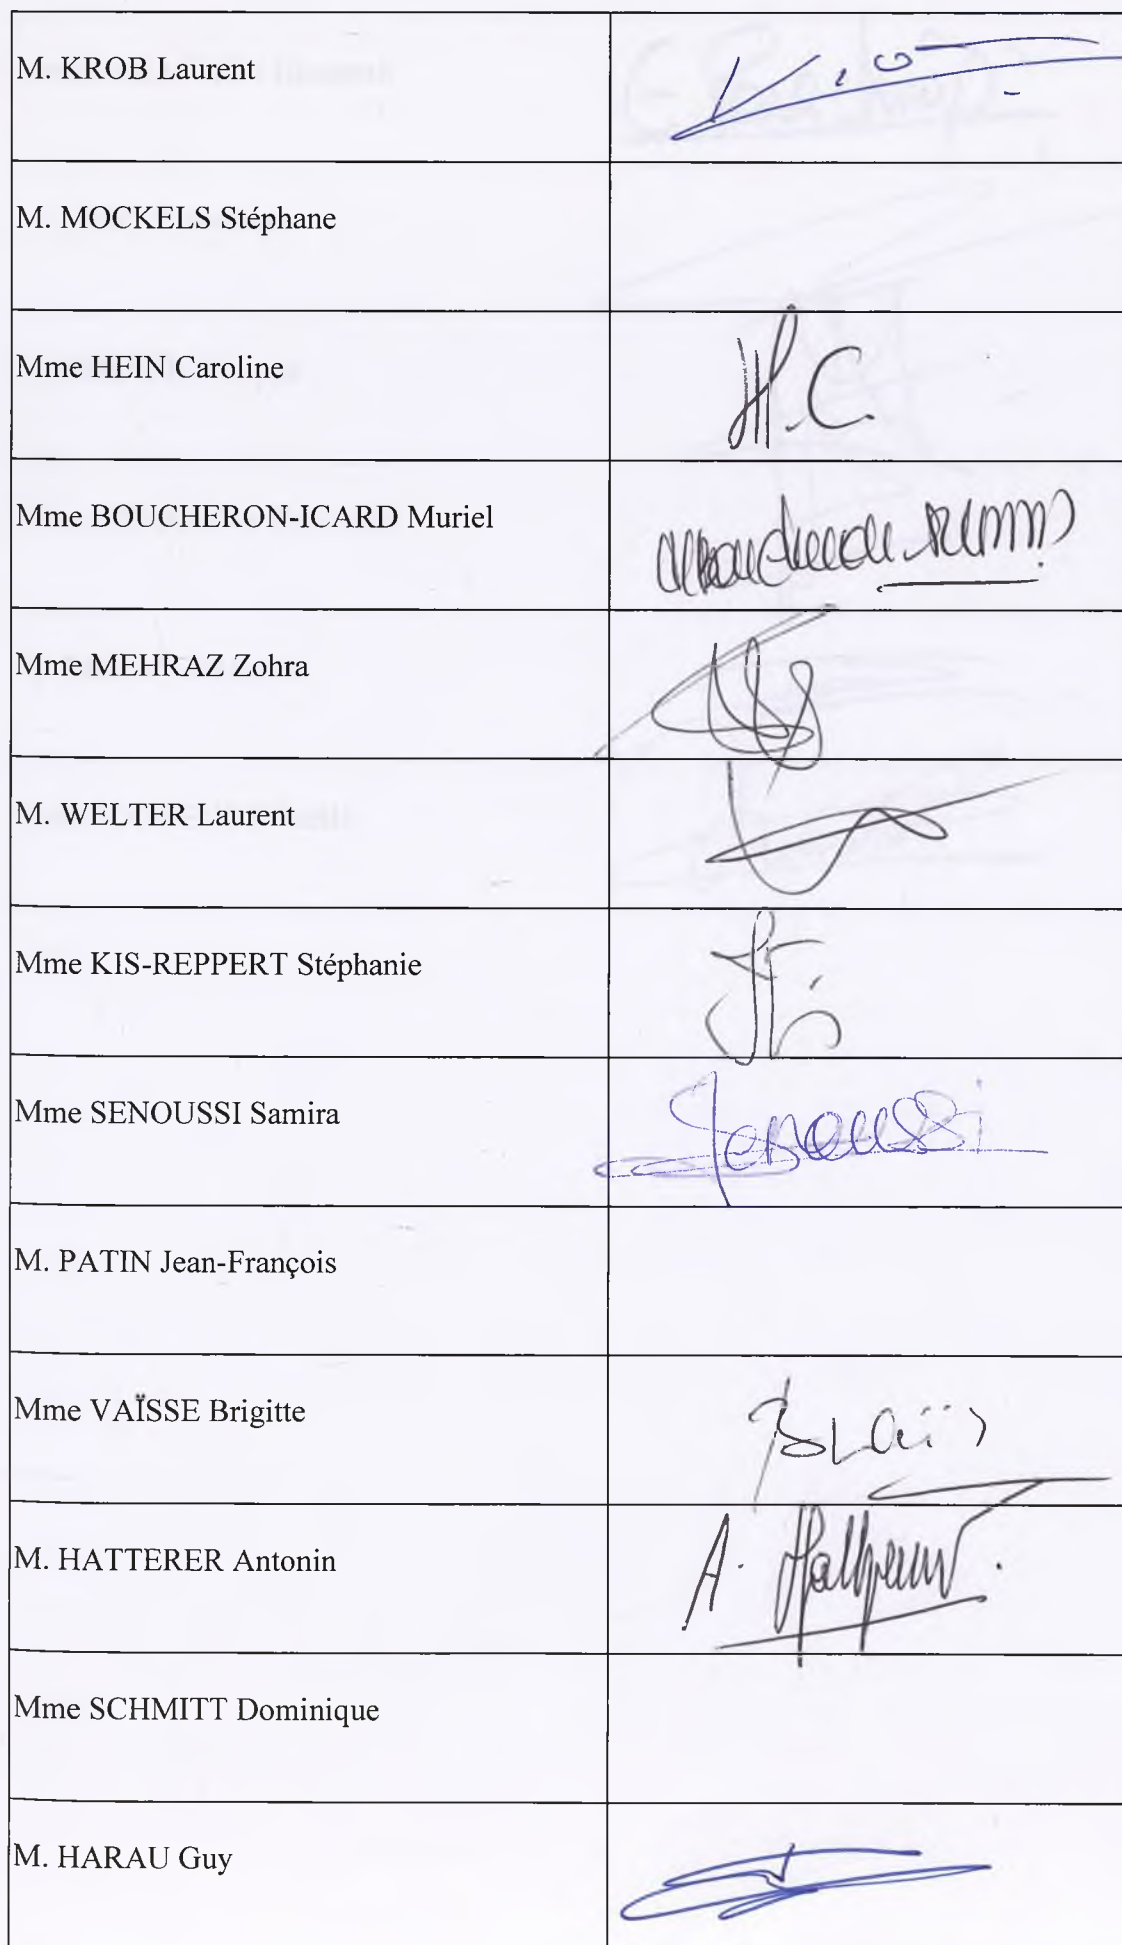 M. KROB Laurent
M. MOCKELS Stéphane
Mme HEIN Caroline
H.C.
Mme BOUCHERON-ICARD Muriel
Mme MEHRAZ Zohra
M. WELTER Laurent
Mme KIS-REPPERT Stéphanie
Mme SENOUSSI Samira
Senoussi
M. PATIN Jean-François
Mme VAÏSSE Brigitte
M. HATTERER Antonin
A.
Mme SCHMITT Dominique
M. HARAU Guy